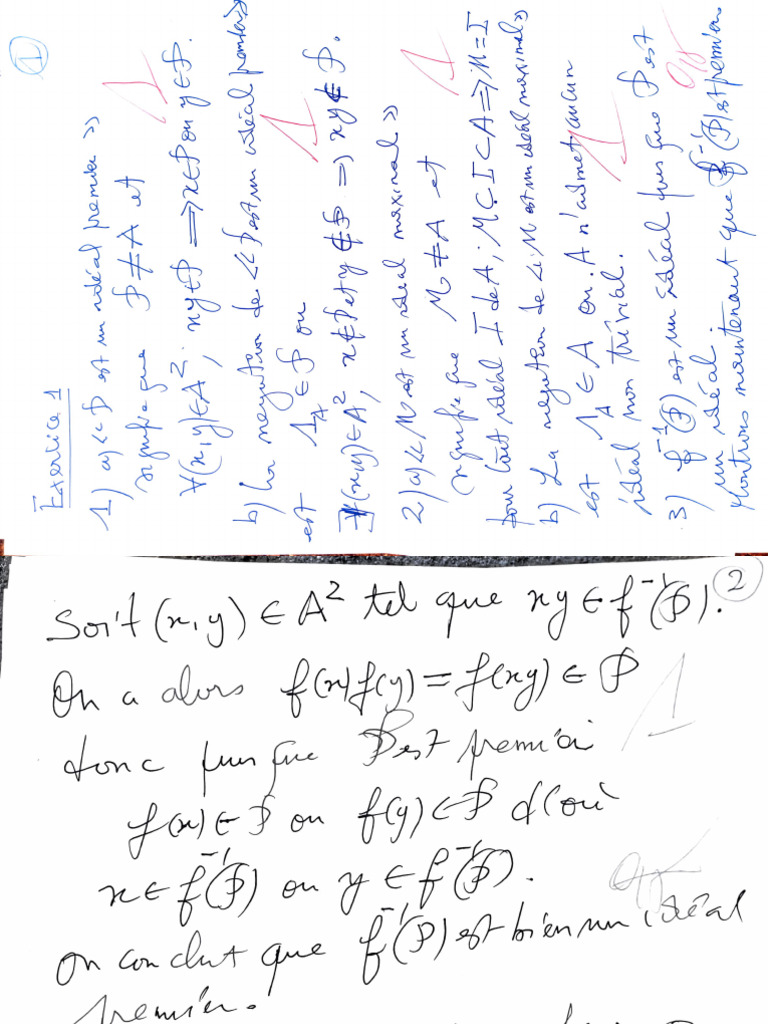 ①
Exercice 1
1) a) << P est un idéal premier >>
signifie que P ≠ A et
∀(x,y)∈A², xy∈P ⇒ x∈P ou y∈P.
1
b) La négation de << P est un idéal premier >>
est 1_A ∈ P ou
1
∃(x,y)∈A² x∉P et y∉P ⇒ xy∈P.
2) a) << M est un idéal maximal >>
signifie que M ≠ A et
1
pour tout idéal I de A, M⊂I⊂A ⇒ M=I
b) La negation de << M est un idéal maximal >>
est 1_A ∈ A ou A n'admet aucun
1
idéal non trivial.
3) f⁻¹(P) est un idéal puis que P est
un idéal.
0,5
Montrons maintenant que f⁻¹(P) est premier
②
Soit (x,y) ∈ A² tel que xy ∈ f⁻¹(P).
On a alors f(x)f(y) = f(xy) ∈ P
1
donc puis que P est premier
f(x) ∈ P ou f(y) ∈ P d'où
x ∈ f⁻¹(P) ou y ∈ f⁻¹(P).
on conclut que f⁻¹(P) est bien un idéal
premier.